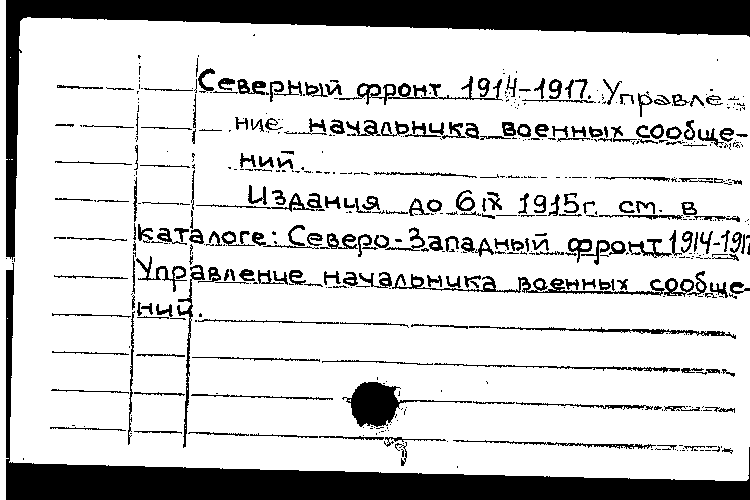 Северный фронт 1914-1917. Управле-
ние начальника военных сообще-
ний.
Издания до 6 IX 1915г. см. в
каталоге: Северо-Западный фронт 1914-1917
Управление начальника военных сообще-
ний.